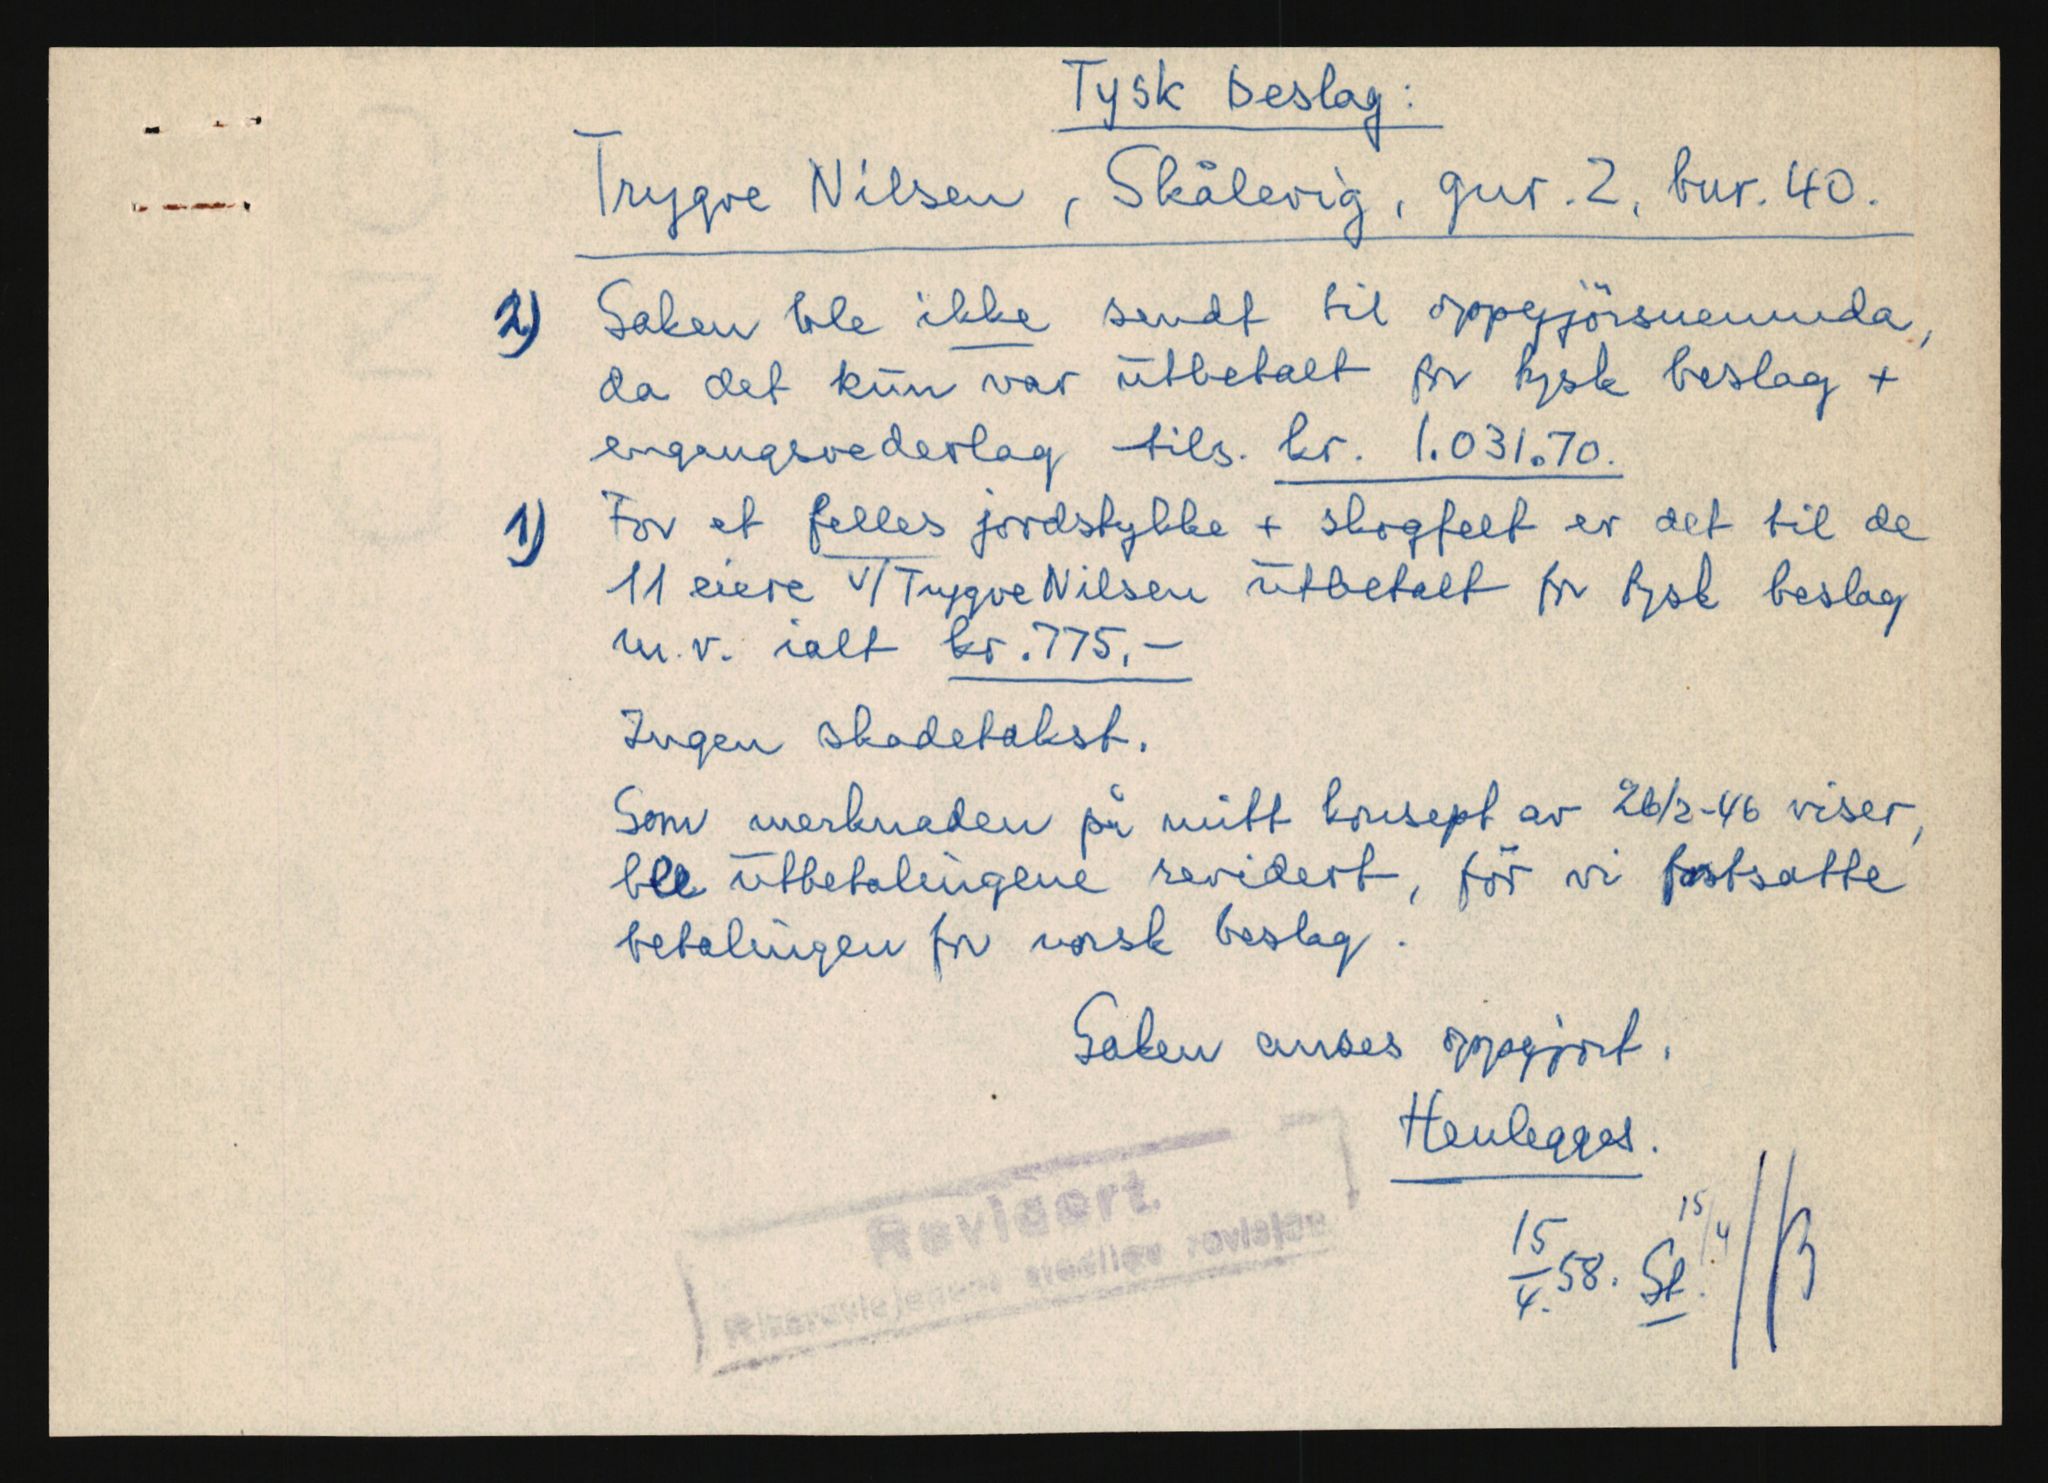 Tysk beslag:
Trygve Nilsen, Skålevig, gnr. 2, bnr. 40.
2) Saken ble ikke sendt til oppgjörsnemnda,
da det kun var utbetalt for tysk beslag +
engangsvederlag tils. kr. 1.031.70.
1) For et felles jordstykke + skogfelt er det til de
11 eiere v/Trygve Nilsen utbetalt for tysk beslag
m.v. ialt kr. 775,-
Ingen skadetakst.
Som merknaden på mitt konsept av 26/2-46 viser,
ble utbetalingene revidert, för vi fastsatte
betalingen for norsk beslag.
Saken anses oppgjort.
Henlegges.
15/4.58. St. 15/4
Revidert.